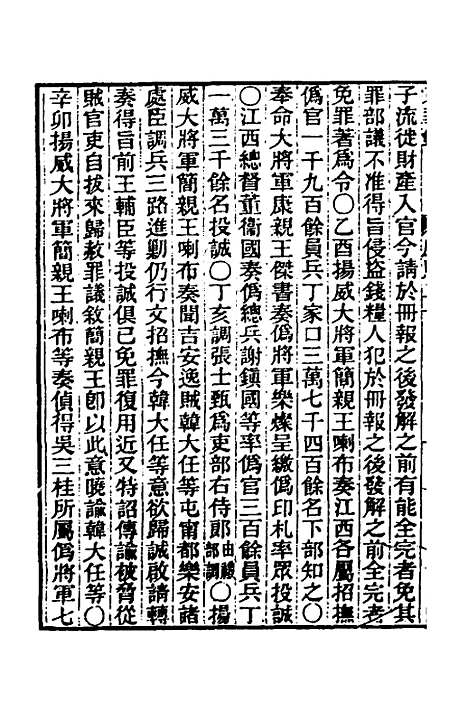 子流徙財產入官今請於冊報之後發解之前有能全完者免其
罪部議不准得旨侵盜錢糧人犯於冊報之後發解之前全完者
免罪著爲令〇乙酉揚威大將軍簡親王喇布奏江西各屬招撫
僞官一千九百餘員兵丁家口三萬七千四百餘名下部知之〇
奉命大將軍康親王傑書奏僞將軍樂燦呈繳僞印札率眾投誠
〇江西總督董衞國奏僞總兵謝鎭國等率僞官三百餘員兵丁
一萬三千餘名投誠〇丁亥調張士甄爲吏部右侍郎由禮部調〇揚
威大將軍簡親王喇布奏聞吉安逸賊韓大任等屯甯都樂安諸
處臣調兵三路進剿仍行文招撫今韓大任等意欲歸誠啟請轉
奏得旨前王輔臣等投誠俱已免罪復用近又特詔傳諭被脅從
賊官吏自拔來歸赦罪議敘簡親王卽以此意曉諭韓大任等〇
辛卯揚威大將軍簡親王喇布等奏偵得吳三桂所屬僞將軍七